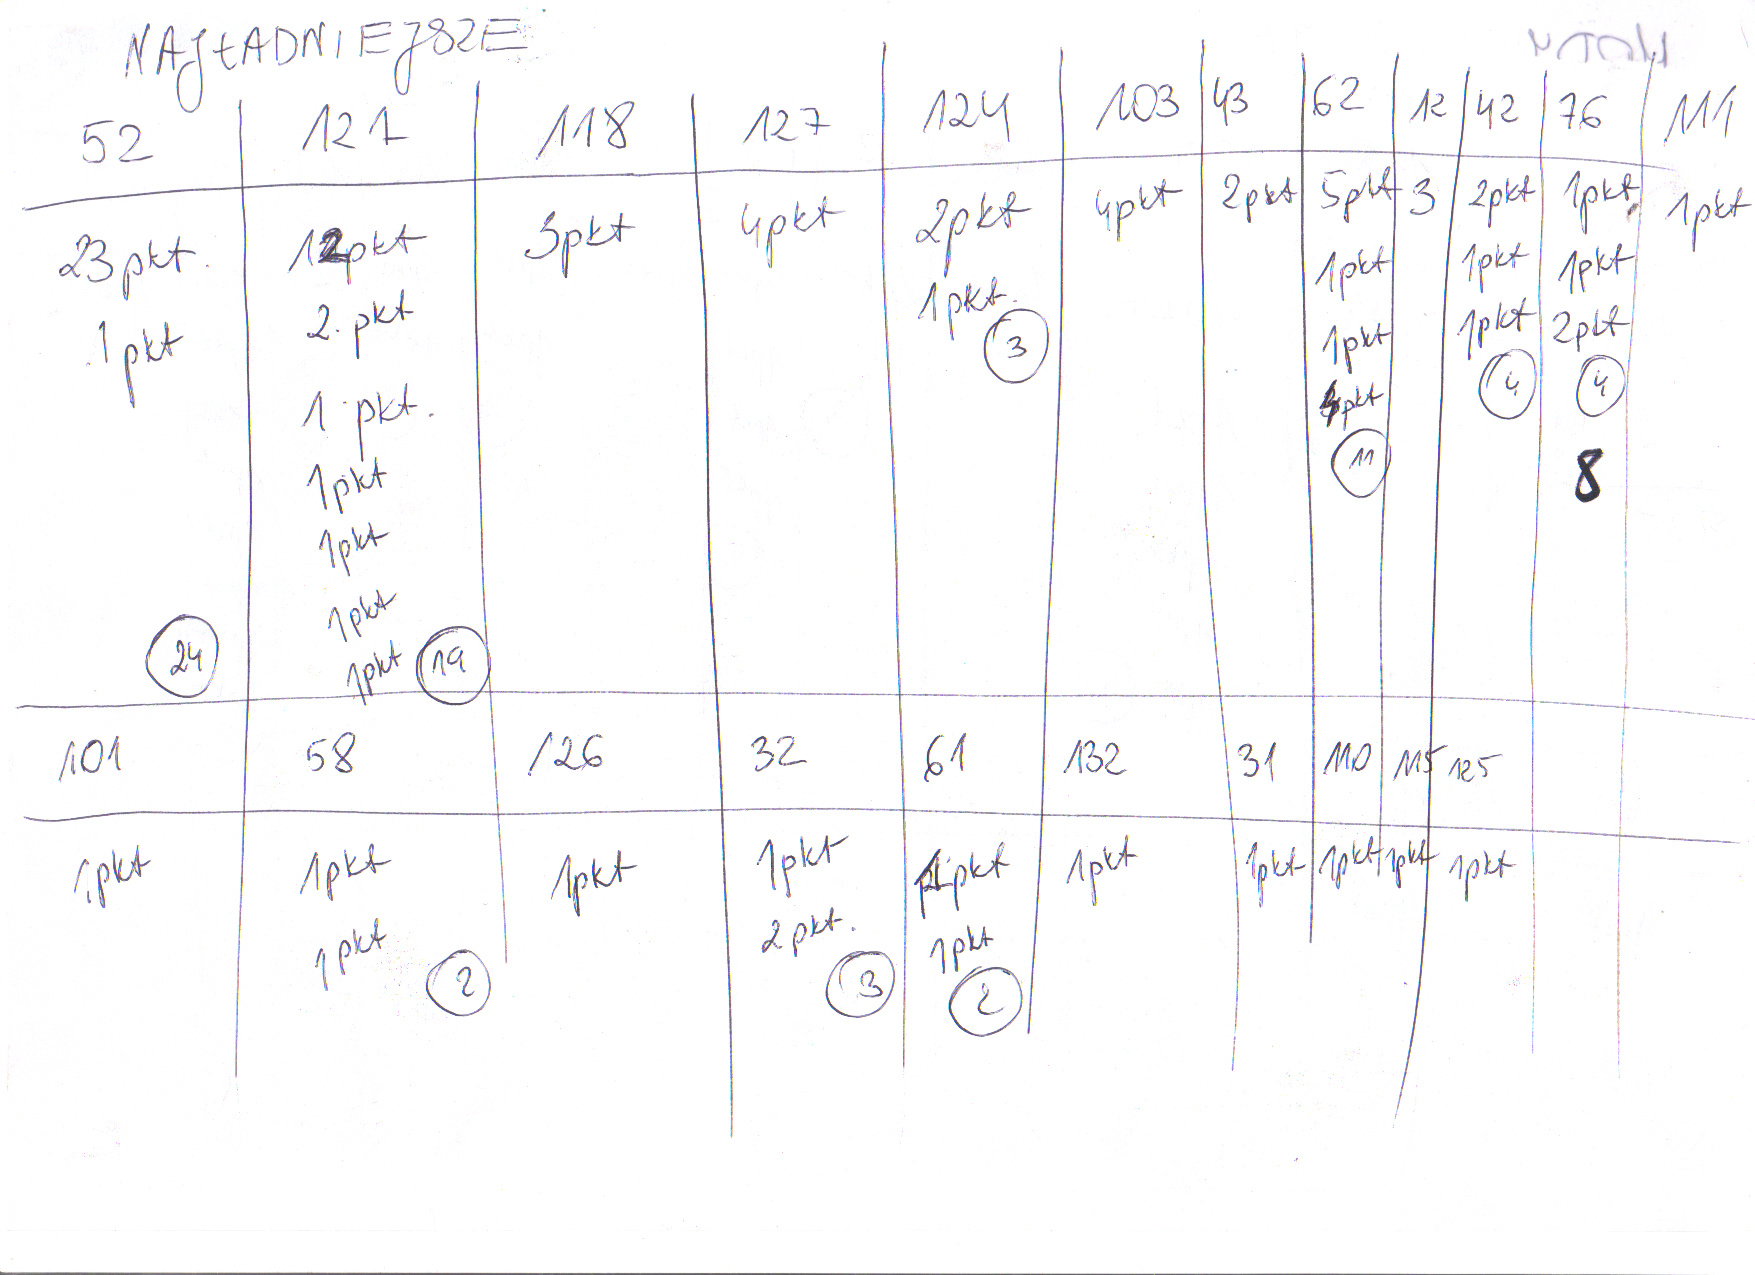 NAJŁADNIEJSZE
52 121 118 127 124 103 43 62 12 42 76 111
23 pkt. 12pkt 3pkt 4pkt 2pkt 4pkt 2pkt 5pkt 3 2pkt 1pkt 1pkt
1pkt 2.pkt 1pkt. 1pkt 1pkt 1pkt
1 pkt. 3 1pkt 1pkt 2pkt
1pkt 4pkt 4 4
1pkt 11 8
1pkt
24 1pkt 19
101 58 126 32 61 132 31 110 115 125
1pkt 1pkt 1pkt 1pkt 1pkt 1pkt 1pkt 1pkt 1pkt 1pkt
1pkt 2pkt. 1pkt
2 3 2